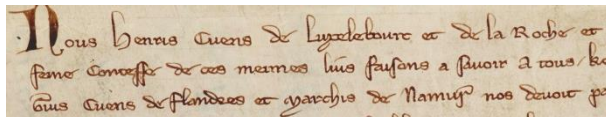 Nous henris Cuens de luxelebourc et de la Roche et
feme Contesse de ces meimes lius faisons a savoir A tous / ke
Cuens de flandres et Marchis de Namur nos devoit